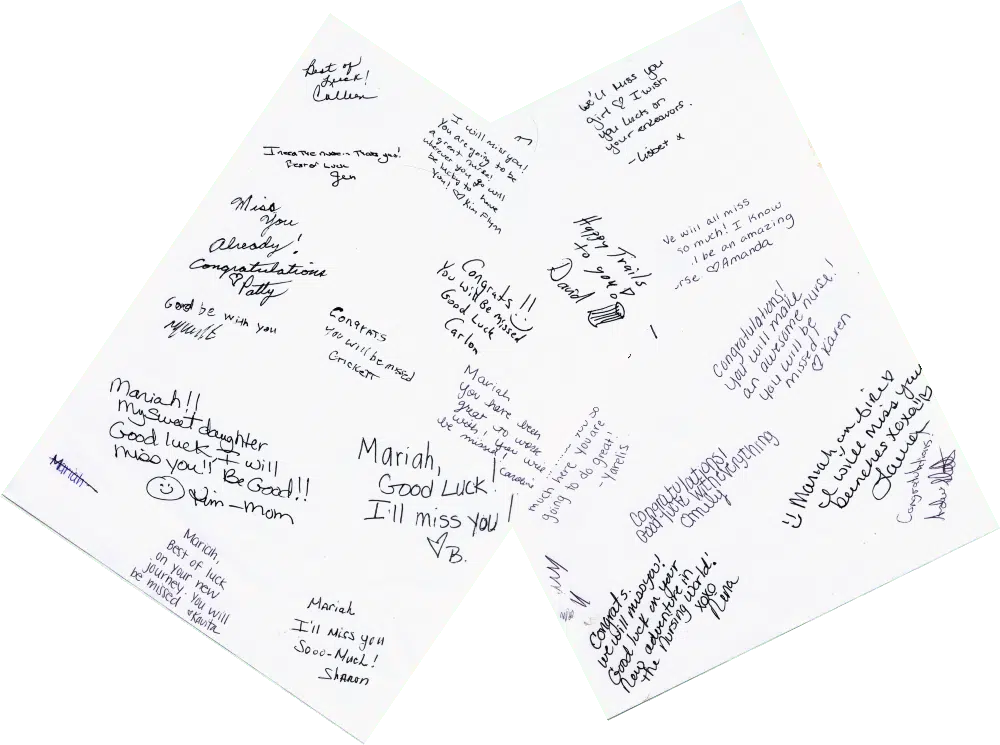 Best of
Luck!
Colleen
I need the nurse... Thank you!
Best of Luck
Jen
Miss
You
Already!
Congratulations
♡Patty
Good be with you
I will miss you!
You are going to be
a great nurse!
wherever you go will
be lucky to have
you! ♡ Kim Flynn
Congrats!!
You will Be missed
Good Luck
Carlon
Congrats
you will be missed
Crickett
Mariah!!
My Sweet daughter
Good luck, I will
miss you!! Be Good!!
Kim-mom
Mariah
Mariah
You have been
great to work
with, you will
be missed
Mariah,
Good Luck!
I'll miss you!
♡ B.
Mariah,
Best of luck
on your new
journey. You will
be missed
Kavita
Mariah
I'll Miss you
Sooo-Much!
Sharon
We'll Miss you
girl ♡ I wish
you lucks on
your endeavors.
-Lisbet x
Happy Trails
to you
David
We will all miss
so much! I know
'l be an amazing
rse. ♡Amanda
Congratulations!
You will make
an awesome nurse!
you will be
missed!
♡ Karen
you so
much here you are
going to do great!
-Yarelis
Congratulations!
Good luck with everything
Mariah,
I will miss you
bunches xoxo!!♡
Congratulations!
Congrats.
we will miss you!
Good luck on your
new adventure in
the Nursing world!
xoxo
Nena